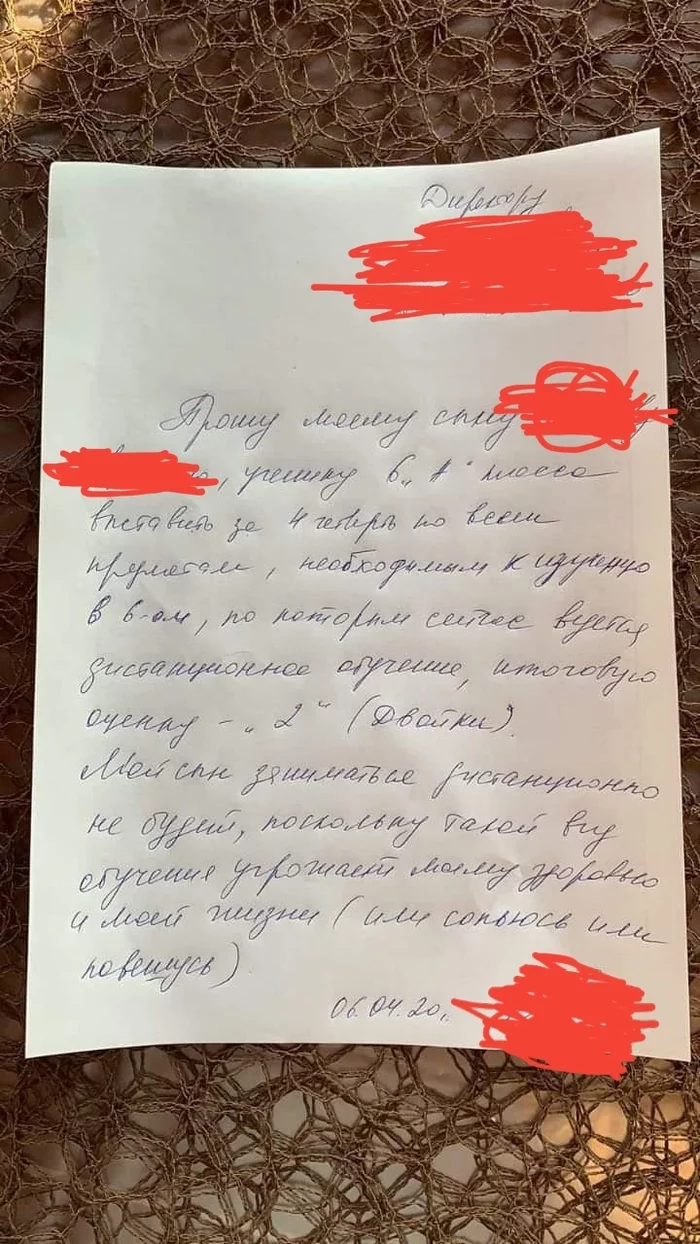 Директору
Прошу моему сыну
, ученику 6 „А“ класса
выставить за 4 четверть по всем
предметам, необходимым к изучению
в 6-ом, по которым сейчас ведется
дистанционное обучение, итоговую
оценку - „2“ (Двойки).
Мой сын заниматься дистанционно
не будет, поскольку такой вид
обучения угрожает моему здоровью
и моей жизни (или сопьюсь или
повешусь).
06.04.20г.